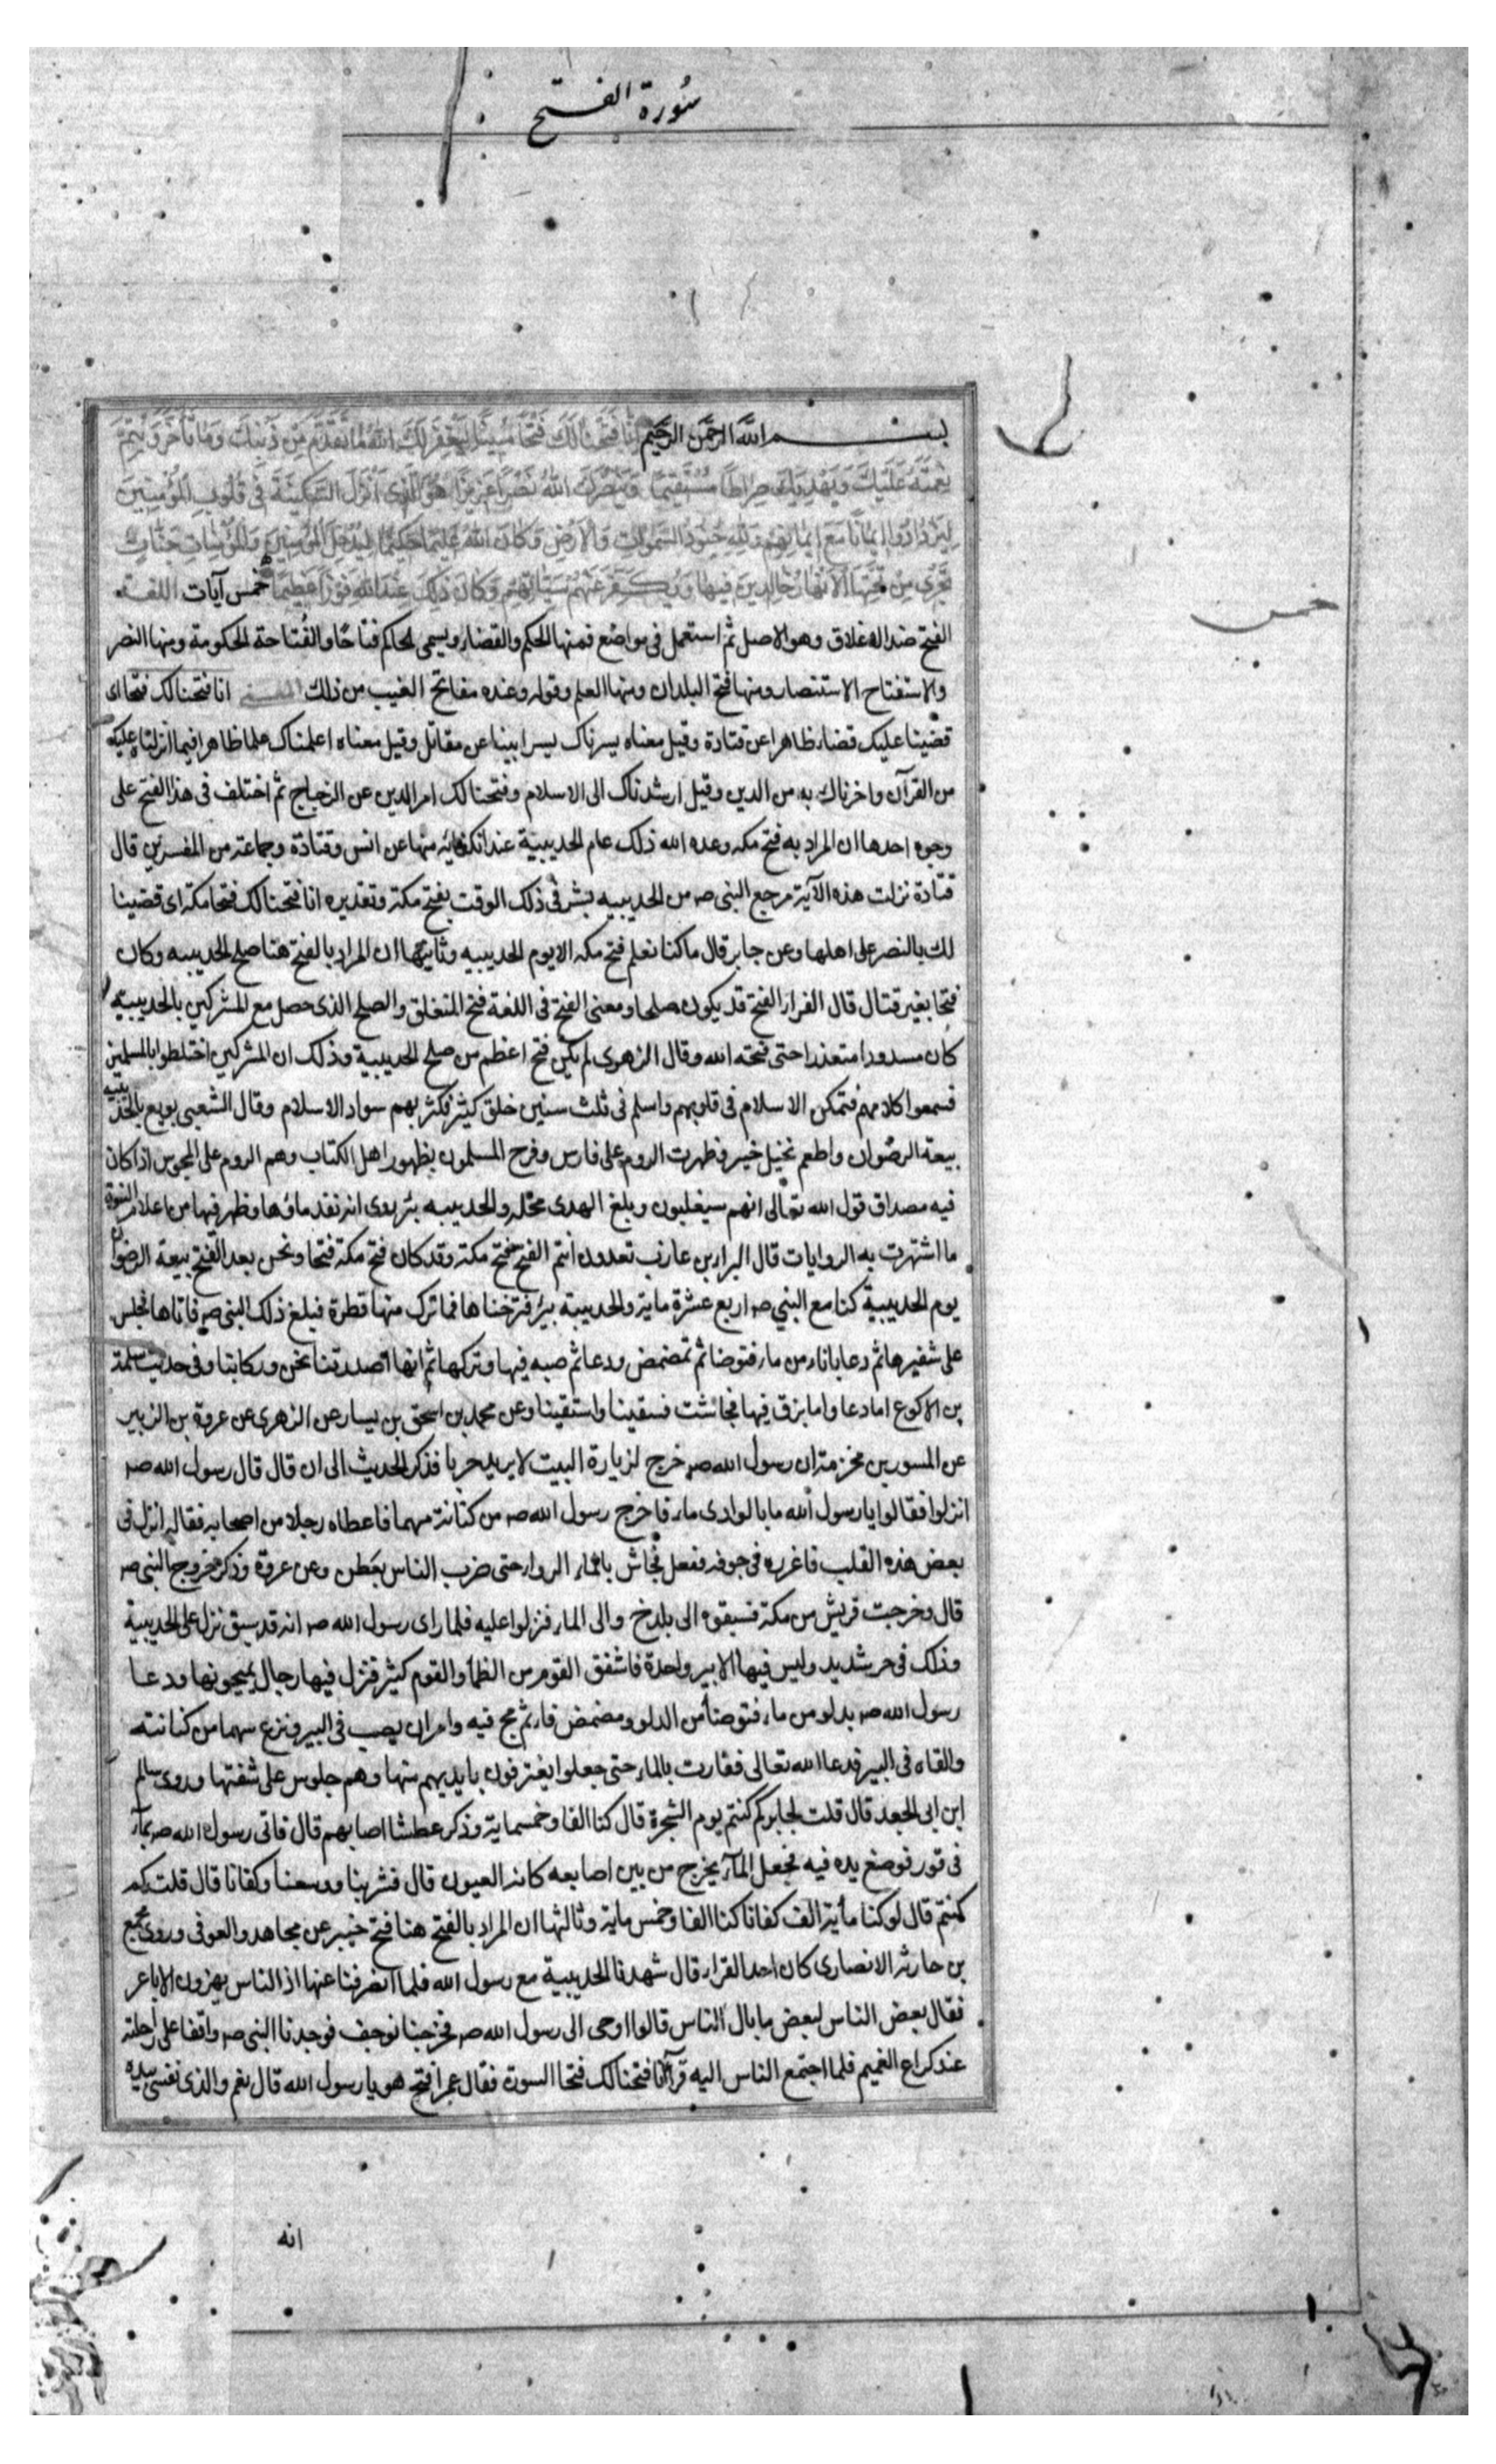 سورة الفتح
بسم الله الرحمن الرحيم إنا فتحنا لك فتحا مبينا ليغفر لك الله ما تقدم من ذنبك وما تأخر ويتم
نعمته عليك ويهديك صراطا مستقيما وينصرك الله نصرا عزيزا هو الذي أنزل السكينة في قلوب المؤمنين
ليزدادوا إيمانا مع إيمانهم ولله جنود السموات والأرض وكان الله عليما حكيما ليدخل المؤمنين والمؤمنات جنات
تجري من تحتها الأنهار خالدين فيها ويكفر عنهم سيئاتهم وكان ذلك عند الله فوزا عظيما خمس آيات اللغة
خمس
الفتح ضد الاغلاق وهو الاصل ثم استعمل في مواضع فمنها الحكم والقضاء ويسمى الحاكم فتاحا والفتاحة الحكومة ومنها النصر
والاستفتاح الاستنصار ومنها فتح البلدان ومنها العلم وقوله وعنده مفاتح الغيب من ذلك انا فتحنا لك فتحا اى
قضينا عليك قضاء ظاهرا عن قتادة وقيل معناه يسرناك يسرا بينا عن مقاتل وقيل معناه اعلمناك علما ظاهرا فيما انزلنا عليك
من القرآن واخبرناك به من الدين وقيل ارشدناك الى الاسلام وفتحنا لك امر الدين عن الزجاج ثم اختلف في هذا الفتح على
وجوه احدها ان المراد به فتح مكه وعده الله ذلك عام الحديبية عند انكفائه منها عن انس وقتادة وجماعة من المفسرين قال
قتادة نزلت هذه الآية مرجع النبى صم من الحديبيه بشر في ذلك الوقت بفتح مكة وتقديره انا فتحنا لك فتحا مكة اى قضينا
لك بالنصر على اهلها وعن جابر قال ما كنا نعلم فتح مكه الا يوم الحديبيه وثانيها ان المراد بالفتح هنا صلح الحديبيه وكان
فتحا بغير قتال قال الفراء الفتح قد يكون صلحا ومعنى الفتح في اللغة فتح المنغلق والصلح الذى حصل مع المشركين بالحديبية
كان مسدودا متعذرا حتى فتحه الله وقال الزهرى لم يكن فتح اعظم من صلح الحديبية وذلك ان المشركين اختلطوا بالمسلمين
فسمعوا كلامهم فتمكن الاسلام في قلوبهم واسلم في ثلث سنين خلق كثير فكثر بهم سواد الاسلام وقال الشعبى بويع بالحديبية
بيعة الرضوان واطعم نخيل خيبر فظهرت الروم على فارس وفرح المسلمون بظهور اهل الكتاب وهم الروم على المجوس اذا كان
فيه مصداق قول الله تعالى انهم سيغلبون وبلغ الهدى محله والحديبيه بئر روى انه نفد ماؤها فظهر فيها من اعلام النبوة
ما اشتهرت به الروايات قال البراء بن عازب تعدون انتم الفتح فتح مكة وقد كان فتح مكة فتحا ونحن بعد الفتح بيعة الرضوان
يوم الحديبية كنا مع النبي صم اربع عشرة ماية والحديبية بير فنزحناها فما ترك منها قطرة فبلغ ذلك النبى صم فاتاها فجلس
على شفيرها ثم دعا باناء من ماء فتوضا ثم تمضمض ودعا ثم صبه فيها وتركها ثم انها اصدرتنا نحن وركابنا وفى حديث سلمة
بن الاكوع اما دعا واما بزق فيها فجاشت فسقينا واستقينا وعن محمد بن اسحق بن يسار عن الزهرى عن عروة بن الزبير
عن المسور بن مخرمة ان رسول الله صم خرج لزيارة البيت لا يريد حربا فذكر الحديث الى ان قال قال رسول الله صم
انزلوا فقالوا يا رسول الله ما بالوادى ماء فاخرج رسول الله صم من كنانته سهما فاعطاه رجلا من اصحابه فقال له انزل فى
بعض هذه القلب فاغرزه فى جوفه ففعل فجاش بالماء الرواء حتى ضرب الناس بعطن وعن عروة وذكر خروج النبى صم
قال وخرجت قريش من مكة فسبقوه الى بلدح والى الماء فنزلوا عليه فلما راى رسول الله صم انه قد سبق نزل على الحديبية
وذلك فى حر شديد وليس فيها الا بير واحدة فاشفق القوم من الظمأ والقوم كثير فنزل فيها رجال يميحونها ودعا
رسول الله صم بدلو من ماء فتوضأ من الدلو ومضمض فاه ثم مج فيه وامر ان يصب فى البير ونزع سهما من كنانته
والقاه فى البير فدعا الله تعالى ففارت بالماء حتى جعلوا يغترفون بايديهم منها وهم جلوس على شفتها وروى سالم
ابن ابى الجعد قال قلت لجابر كم كنتم يوم الشجرة قال كنا الفا وخمسماية وذكر عطشا اصابهم قال فاتى رسول الله صم بماء
فى تور فوضع يده فيه فجعل الماء يخرج من بين اصابعه كانه العيون قال فشربنا ووسعنا وكفانا قال قلت كم
كنتم قال لو كنا مأية الف كفانا كنا الفا وخمس ماية وثالثها ان المراد بالفتح هنا فتح خيبر عن مجاهد والعوفى وروى مجمع
بن حارثه الانصارى كان احد القراء قال شهدنا الحديبية مع رسول الله فلما انصرفنا عنها اذ الناس يهزون الاباعر
فقال بعض الناس لبعض ما بال الناس قالوا اوحى الى رسول الله صم فخرجنا نوجف فوجدنا النبى صم واقفا على راحلته
عند كراع الغميم فلما اجتمع الناس اليه قرأ انا فتحنا لك فتحا السورة فقال عمر افتح هو يا رسول الله قال نعم والذى نفسى بيده
انه